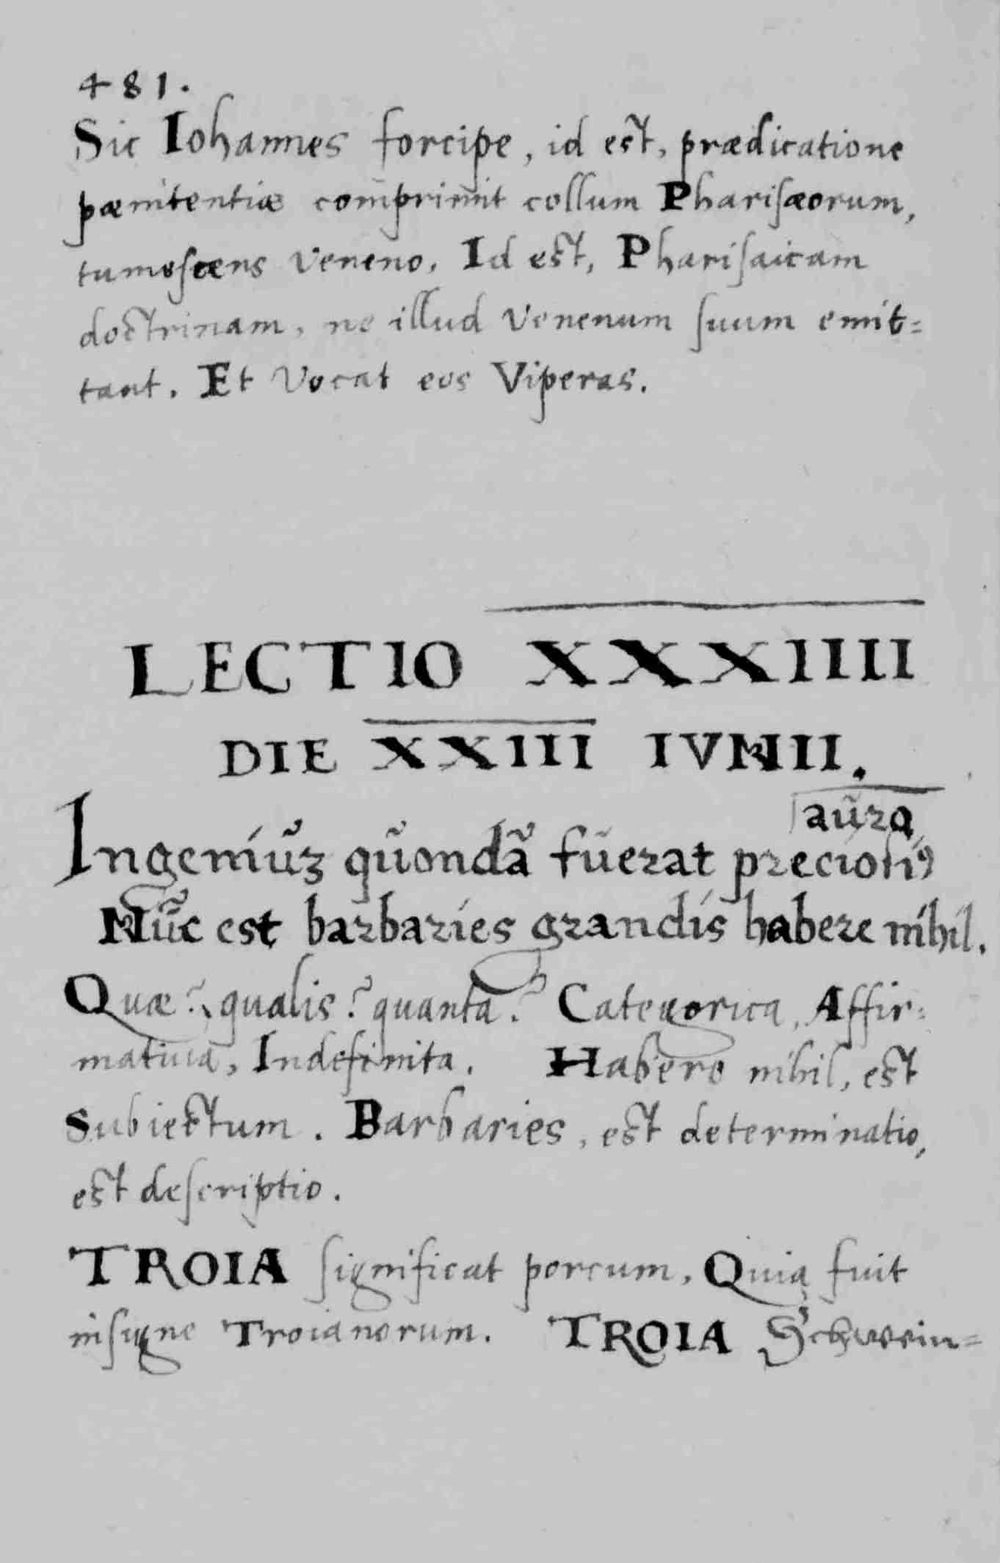 481.
Sic Iohannes forcipe, id est, prædicatione
pænitentiæ comprimit collum Pharisæorum,
tumescens veneno. Id est, Pharisaicam
doctrinam, ne illud venenum suum emit=
tant. Et vocat eos Viperas.
LECTIO XXXIIII
DIE XXIII IVNII.
auro
Ingeniuʒ quondã fuerat preciosiꝰ
Nũc est barbaries grandis habere nihil.
Quæ? qualis? quanta? Categorica, Affir=
matiua, Indefinita. Habere nihil, est
Subiectum. Barbaries, est determinatio,
est descriptio.
TROIA significat porcum, Quia fuit
insigne Troianorum. TROIA Schwein=